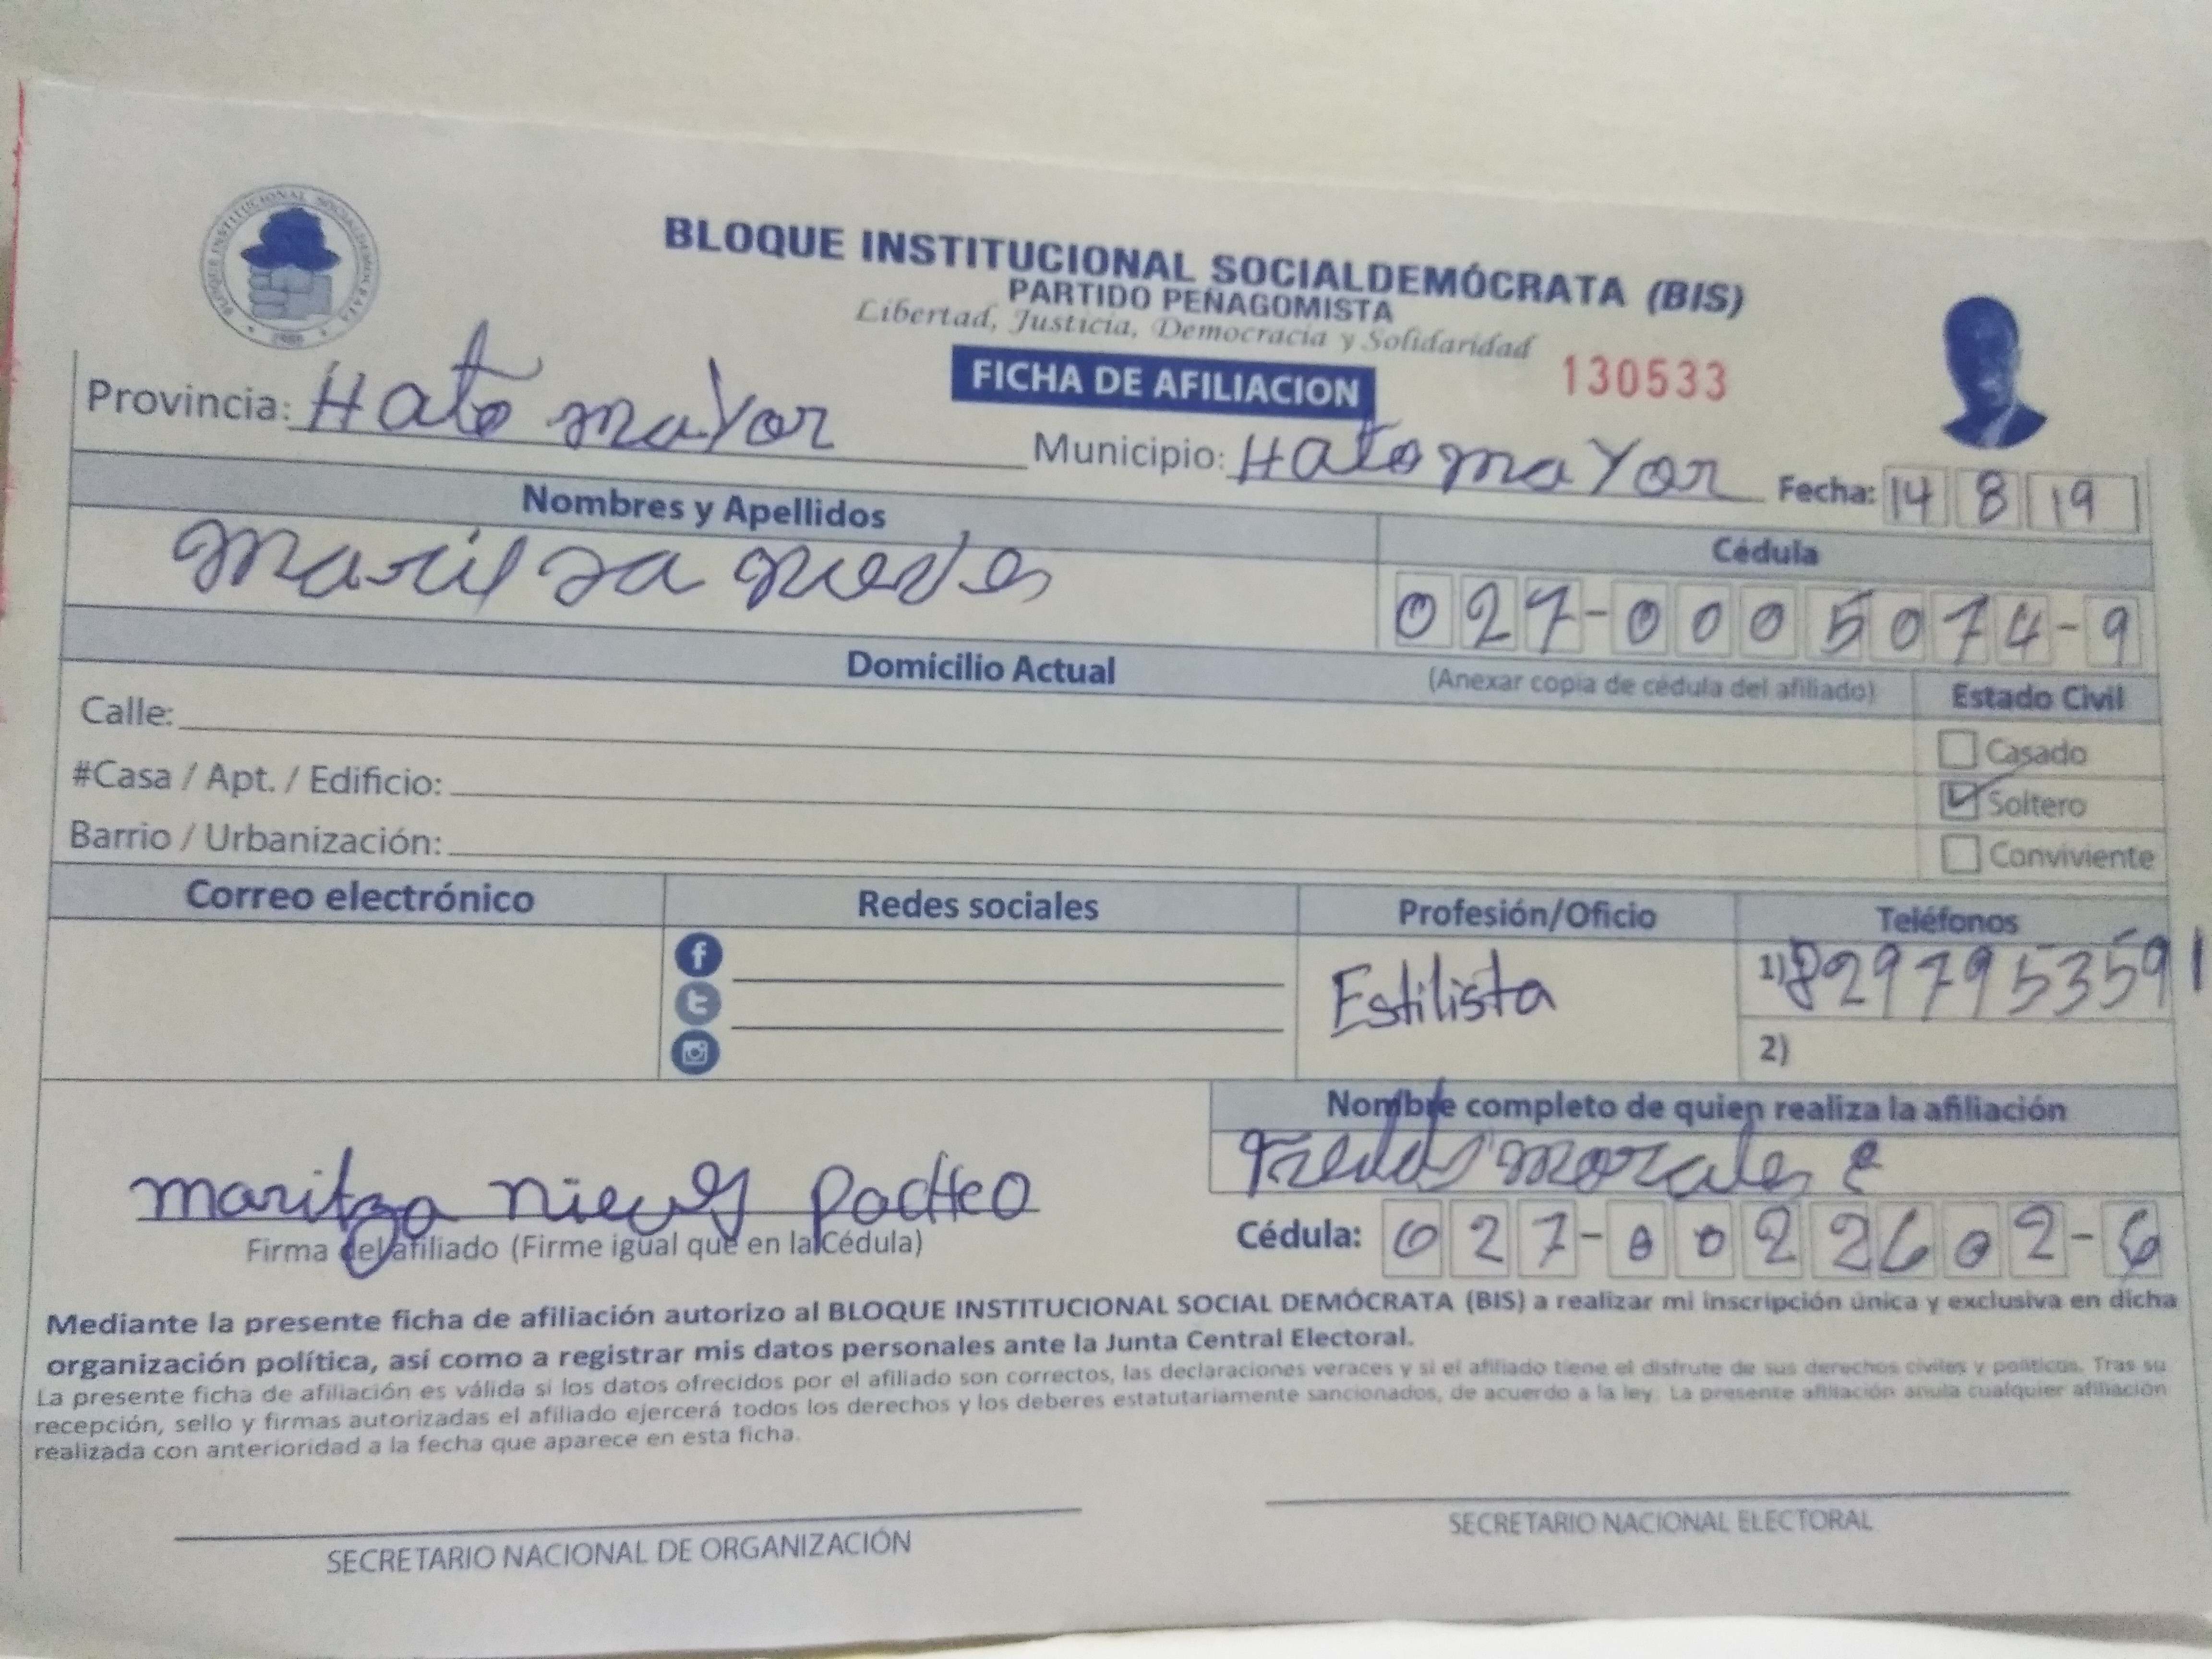 BLOQUE INSTITUCIONAL SOCIALDEMOCRATA
BLOQUE INSTITUCIONAL SOCIALDEMÓCRATA (BIS)
PARTIDO PEÑAGOMISTA
Libertad, Justicia, Democracia y Solidaridad
FICHA DE AFILIACION 130533
Provincia: Hato mayor Municipio: Hato mayor Fecha: 14 8 19
Nombres y Apellidos
Cédula
Marilza nieves
027-0005074-9
Domicilio Actual (Anexar copia de cédula del afiliado) Estado Civil
Calle:
Casado
#Casa / Apt. / Edificio:
Soltero
Barrio / Urbanización:
Conviviente
Correo electrónico Redes sociales Profesión/Oficio Teléfonos
Estilista
1) 8297953591
2)
Nombre completo de quien realiza la afiliación
Freddy morales
maritza nieves pacheo
Firma del afiliado (Firme igual que en la Cédula)
Cédula: 027-0022602-6
Mediante la presente ficha de afiliación autorizo al BLOQUE INSTITUCIONAL SOCIAL DEMÓCRATA (BIS) a realizar mi inscripción única y exclusiva en dicha
organización política, así como a registrar mis datos personales ante la Junta Central Electoral.
La presente ficha de afiliación es válida si los datos ofrecidos por el afiliado son correctos, las declaraciones veraces y si el afiliado tiene el disfrute de sus derechos civiles y políticos. Tras su
recepción, sello y firmas autorizadas el afiliado ejercerá todos los derechos y los deberes estatutariamente sancionados, de acuerdo a la ley. La presente afiliación anula cualquier afiliación
realizada con anterioridad a la fecha que aparece en esta ficha.
SECRETARIO NACIONAL DE ORGANIZACIÓN
SECRETARIO NACIONAL ELECTORAL